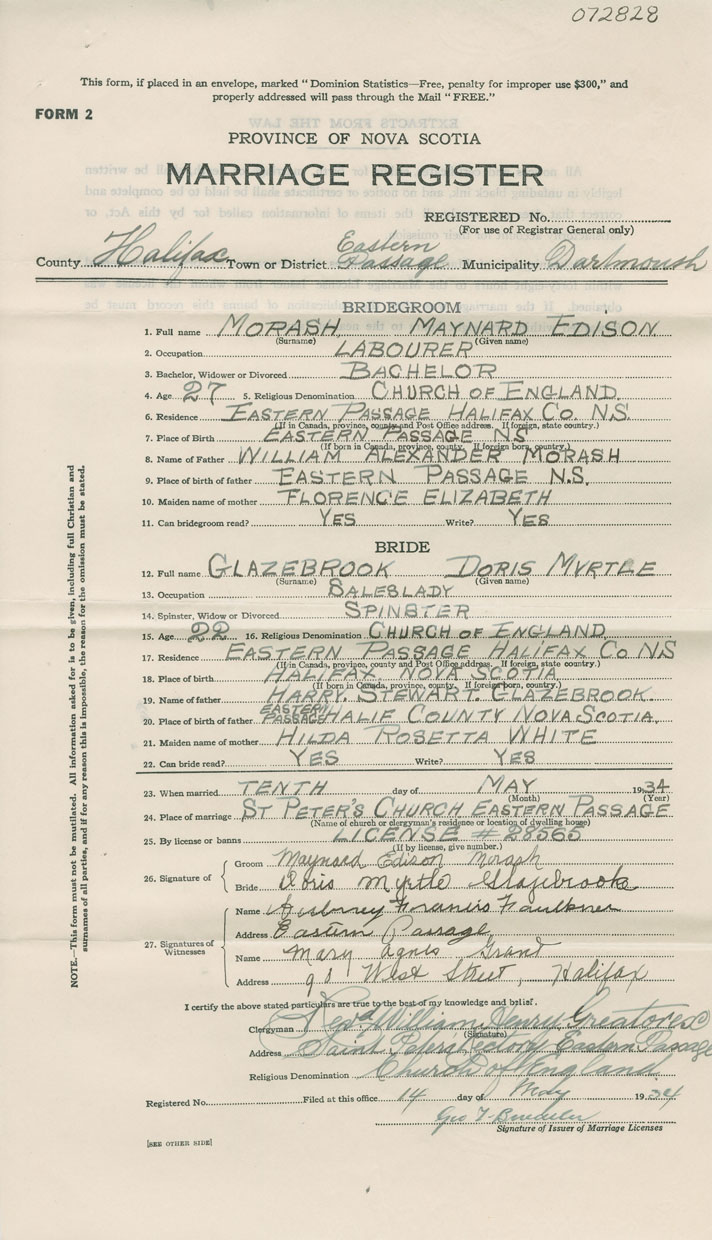 072828
This form, if placed in an envelope, marked "Dominion Statistics—Free, penalty for improper use $300," and
properly addressed will pass through the Mail "FREE."
FORM 2
PROVINCE OF NOVA SCOTIA
MARRIAGE REGISTER
REGISTERED No.
(For use of Registrar General only)
County Halifax Town or District Eastern Passage Municipality Dartmouth
BRIDEGROOM
1. Full name MORASH, MAYNARD EDISON
(Surname) (Given name)
2. Occupation LABOURER
3. Bachelor, Widower or Divorced BACHELOR
4. Age 27 5. Religious Denomination CHURCH OF ENGLAND.
6. Residence EASTERN PASSAGE HALIFAX CO. N.S.
(If in Canada, province, county and Post Office address. If foreign, state country.)
7. Place of Birth EASTERN PASSAGE NS
(If born in Canada, province, county. If foreign born, country.)
8. Name of Father WILLIAM ALEXANDER MORASH
9. Place of birth of father EASTERN PASSAGE N.S.
10. Maiden name of mother FLORENCE ELIZABETH
11. Can bridegroom read? YES Write? YES
BRIDE
12. Full name GLAZEBROOK DORIS MYRTLE
(Surname) (Given name)
13. Occupation SALESLADY
14. Spinster, Widow or Divorced SPINSTER
15. Age 22 16. Religious Denomination CHURCH OF ENGLAND
17. Residence EASTERN PASSAGE HALIFAX CO NS
(If in Canada, province, county and Post Office address. If foreign, state country.)
18. Place of birth HALIFAX NOVA SCOTIA
(If born in Canada, province, county. If foreign born, country.)
19. Name of father HARRY. STEWART. GLAZEBROOK
20. Place of birth of father EASTERN PASSAGE HALIF COUNTY NOVA SCOTIA.
21. Maiden name of mother HILDA ROSETTA WHITE
22. Can bride read? YES Write? YES
23. When married TENTH day of MAY 1934
(Month) (Year)
24. Place of marriage ST PETER'S CHURCH EASTERN PASSAGE
(Name of church or clergyman's residence or location of dwelling house)
25. By license or banns LICENSE # 28565
(If by license, give number.)
26. Signature of
Groom Maynard Edison Morash
Bride Doris Myrtle Glazebrook
27. Signatures of Witnesses
Name Francis Faulkner
Address Eastern Passage
Name Mary Agnes Grant
Address 90 West Street, Halifax
I certify the above stated particulars are true to the best of my knowledge and belief.
Clergyman Revd William Henry Greatorex
(Signature)
Address Saint Peters Rectory Eastern Passage
Religious Denomination Church of England
Registered No. Filed at this office 14 day of May 1934
Geo
Signature of Issuer of Marriage Licenses
[SEE OTHER SIDE]
NOTE.—This form must not be mutilated. All information asked for is to be given, including full Christian and
surnames of all parties, and if for any reason this is impossible, the reason for the omission must be stated.